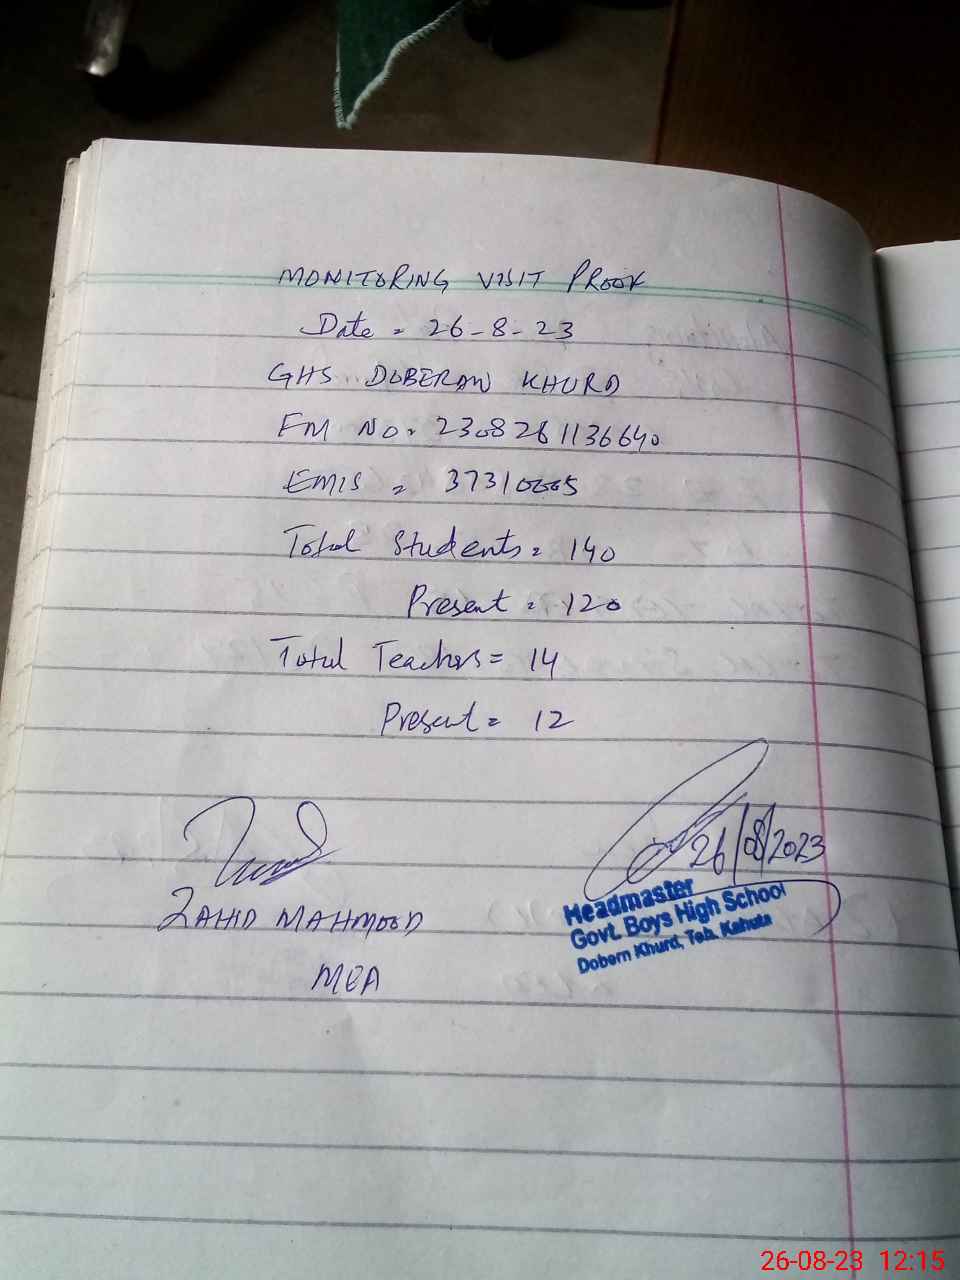 MONITORING VISIT PROOF
Date = 26-8-23
GHS DOBERAN KHURD
FM NO. 2308261136640
EMIS = 37310005
Total Students = 140
Present = 120
Total Teachers = 14
Present = 12
26/08/2023
Headmaster
Govt. Boys High School
Dobern Khurd, Teh. Kahuta
ZAHID MAHMOOD
MEA
26-08-23 12:15